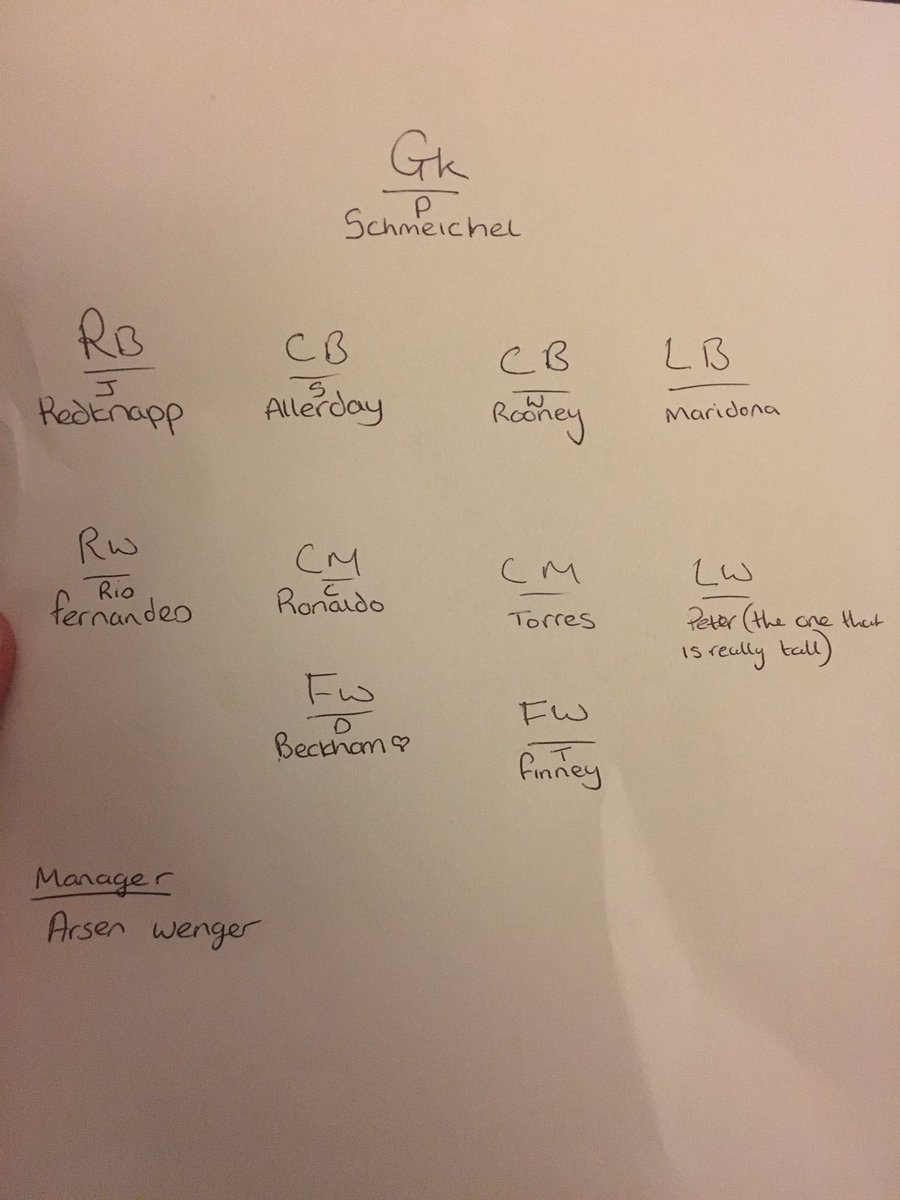 Gk
P
Schmeichel
RB CB CB LB
J S W
Redknapp Allerday Rooney Maridona
RW CM CM LW
Rio C
fernandeo Ronaldo Torres Peter (the one that
is really tall)
FW FW
D T
Beckham♡ finney
Manager
Arsen wenger